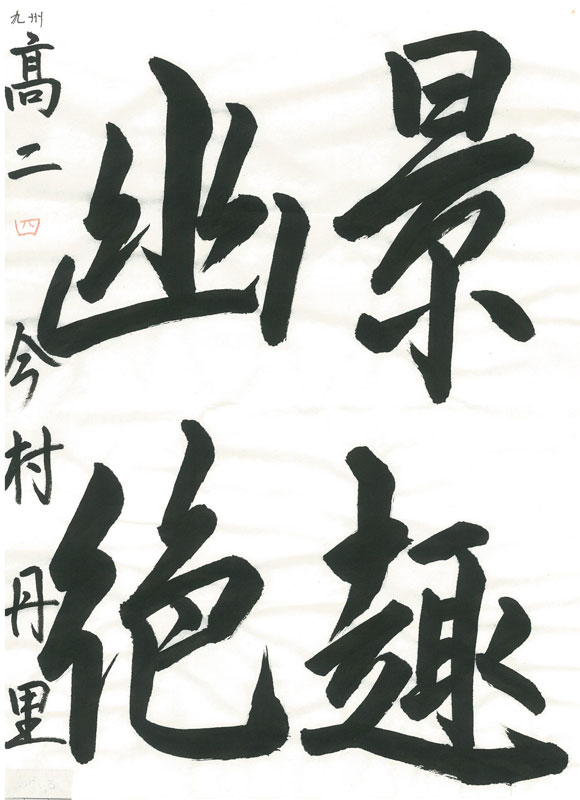 景趣
幽絶
九州
高二 四 今村 丹里